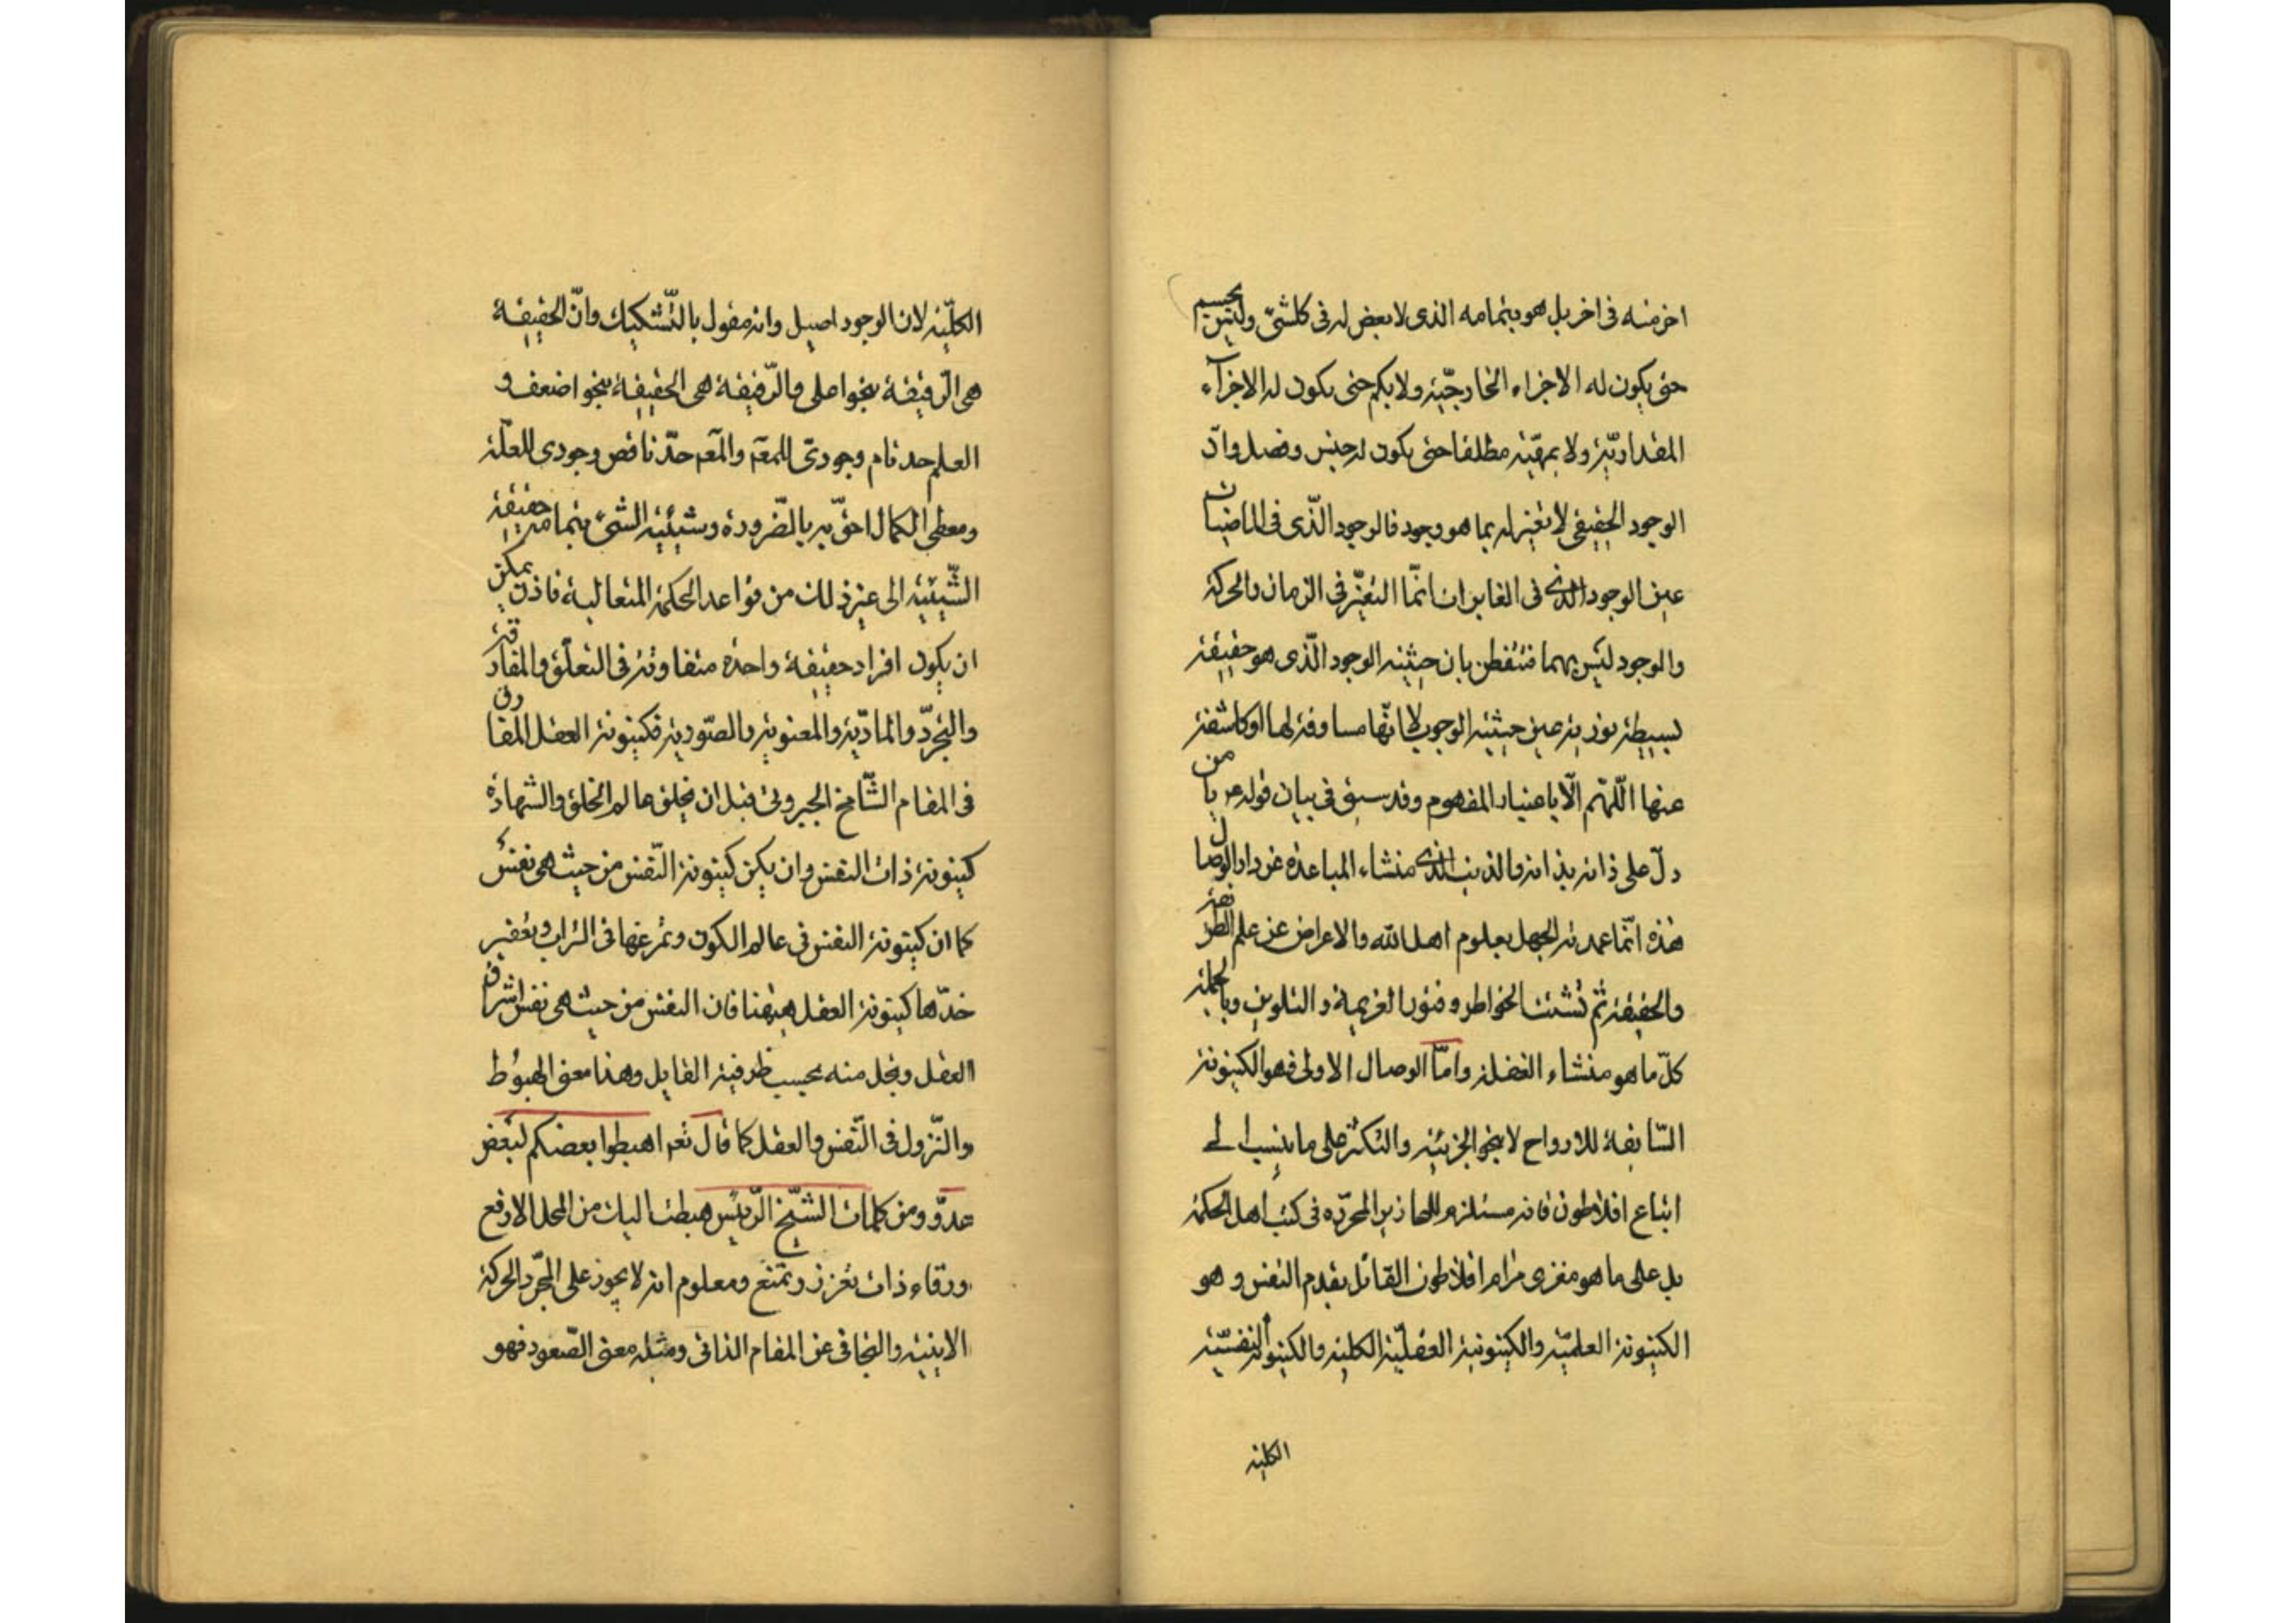 اخر منه فى اخر بل هو بتمامه الذى لا بعض له فى كلشئ وليس بجسم
حتى يكون له الاجزاء الخارجيّة ولا بكم حتى يكون له الاجزآء
المقداريّة ولا بمهيّة مطلقا حتى يكون له جنس وفصل وانّ
الوجود الحقيقى لا تغير له بما هو وجود فالوجود الذّى فى الماضيات
عين الوجود الذى فى الغابرات انّما التغيّر فى الزمان والحركة
والوجود ليس بهما فتفطن بان حيثية الوجود الّذى هو حقيقة
بسيطة نورية عين حيثية الوجوب لا انّها مساوقة لها او كاشفة
عنها اللّهمّ الّا باعتبار المفهوم وقد سبق فى بيان قوله ع يا من
دلّ على ذاته بذاته والذنب الذى منشاء المباعدة عن دار الوصال
هذه انّما عمدته الجهل بعلوم اهل الله والاعراض عن علم الطريقة
والحقيقة ثم تشتت الخواطر وفتور العزيمة والتلوين وبالجملة
كلّ ما هو منشاء الغفلة وامّا الوصال الاولى فهو الكينونة
السّابقة للارواح لا بنحو الجزئية والتكثر على ما ينسب الى
اتباع افلاطون فانه مستلزم للمحاذير المحرّرة فى كتب اهل الحكمة
بل على ما هو مغزى مرام افلاطون القائل بقدم النفس و هو
الكينونة العلميّة والكينونية العقليّة الكلية والكينونة النفسيّة
الكلية
الكلّية لان الوجود اصيل وانه مقول بالتّشكيك وانّ الحقيقة
هى الرّقيقة بنحو اعلى والرّقيقة هى الحقيقة بنحو اضعف و
العلم حد تام وجودىّ للمعّه والمعّه حدّ ناقص وجودى للعلّة
ومعطى الكمال احقّ به بالضّرورة وشيئية الشئ بتمامه حقيقة
الشّيئية الى غير ذلك من قواعد الحكمة المتعالية فاذن يمكن
ان يكون افراد حقيقة واحدة متفاوتة فى التعلّق والمفارقة
والتجرّد والماديّة والمعنوية والصّورية فكينونة العقل المفارق
فى المقام الشّامخ الجبروتى قبل ان يخلق عالم الخلق والشهادة
كينونة ذات النفس وان يكن كينونة النّفس من حيث هى نفس
كما ان كينونة النفس فى عالم الكون وتمرغها فى التراب وتعفير
خدّها كينونة العقل هيهنا فان النفس من حيث هى نفس اشراق
العقل وتجل منه بحسب ظرفية القابل وهذا معنى الهبوُط
والنّزول فى النّفس والعقل كما قال تعه اهبطوا بعضكم لبعض
عدوّ ومن كلمات الشّيخ الرّئيس هبطت اليك من المحل الارفع
ورقاء ذات تعزز وتمنع ومعلوم انه لا يجوز على المجرّد الحركة
الاينية والتجافى عن المقام الذاتى ومثله معنى الصّعود فهو